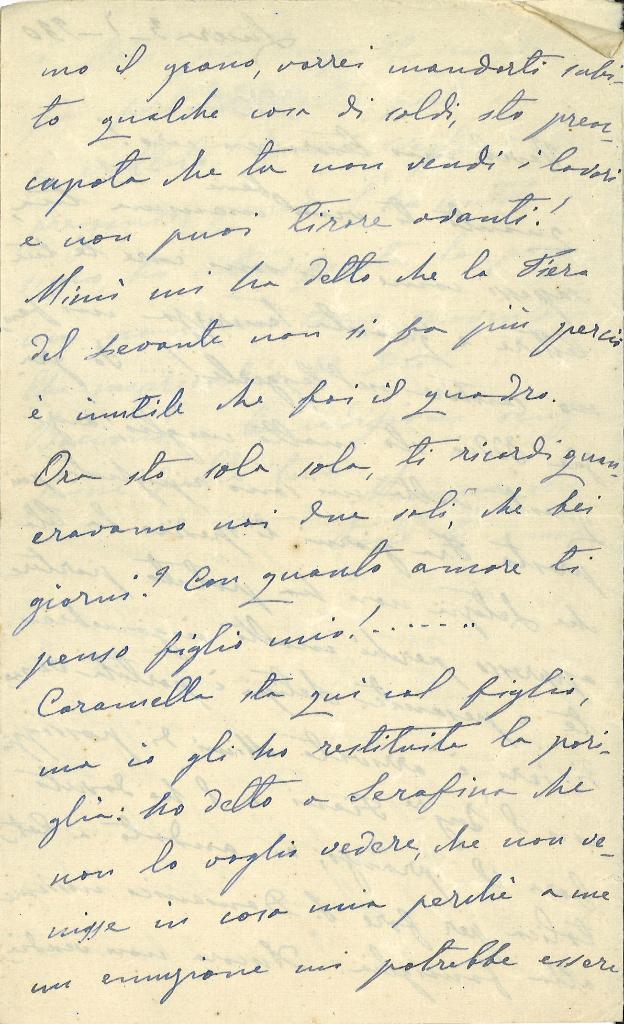 mo il grano, vorrei mandarti subi-
to qualche cosa di soldi, sto preoc-
cupata che tu non vendi i lavori
e non puoi tirare avanti!
Mimì mi ha detto che la Fiera
del Levante non si fa più perciò
è inutile che fai il quadro.
Ora sto sola sola, ti ricordi quan-
eravamo noi due soli, che bei
giorni? Con quanto amore ti
penso figlio mio!.......
Caramella sta qui col figlio,
ma io gli ho restituita la pari-
glia: ho detto a Serafina che
non lo voglio vedere, che non ve-
nisse in casa mia perchè a me
un emozione mi potrebbe essere